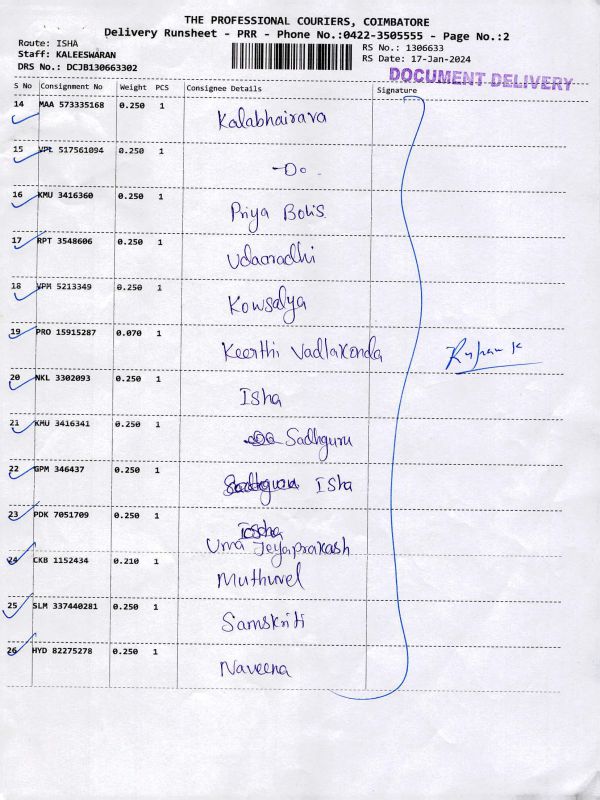 THE PROFESSIONAL COURIERS, COIMBATORE
Delivery Runsheet - PRR - Phone No.:0422-3505555 - Page No.:2
Route: ISHA
Staff: KALEESWARAN
DRS No.: DCJB130663302
RS No.: 1306633
RS Date: 17-Jan-2024
DOCUMENT DELIVERY
S No Consignment No Weight PCS Consignee Details Signature
14 MAA 573335168 0.250 1 Kalabhairava
15 VPL 517561094 0.250 1 -Do-
16 KMU 3416360 0.250 1 Priya Bolis
17 RPT 3548606 0.250 1 Udaaradhi
18 VPM 5213349 0.250 1 Kowsalya
19 PRO 15915287 0.070 1 Keerthi Vadlakonda
20 NKL 3302093 0.250 1 Isha
21 KMU 3416341 0.250 1 Sadhguru
22 GPM 346437 0.250 1 Sadhguru Isha
23 PDK 7051709 0.250 1 Uma Jeyaprakash
24 CKB 1152434 0.210 1 Muthuvel
25 SLM 337440281 0.250 1 Samskriti
26 HYD 82275278 0.250 1 Naveena